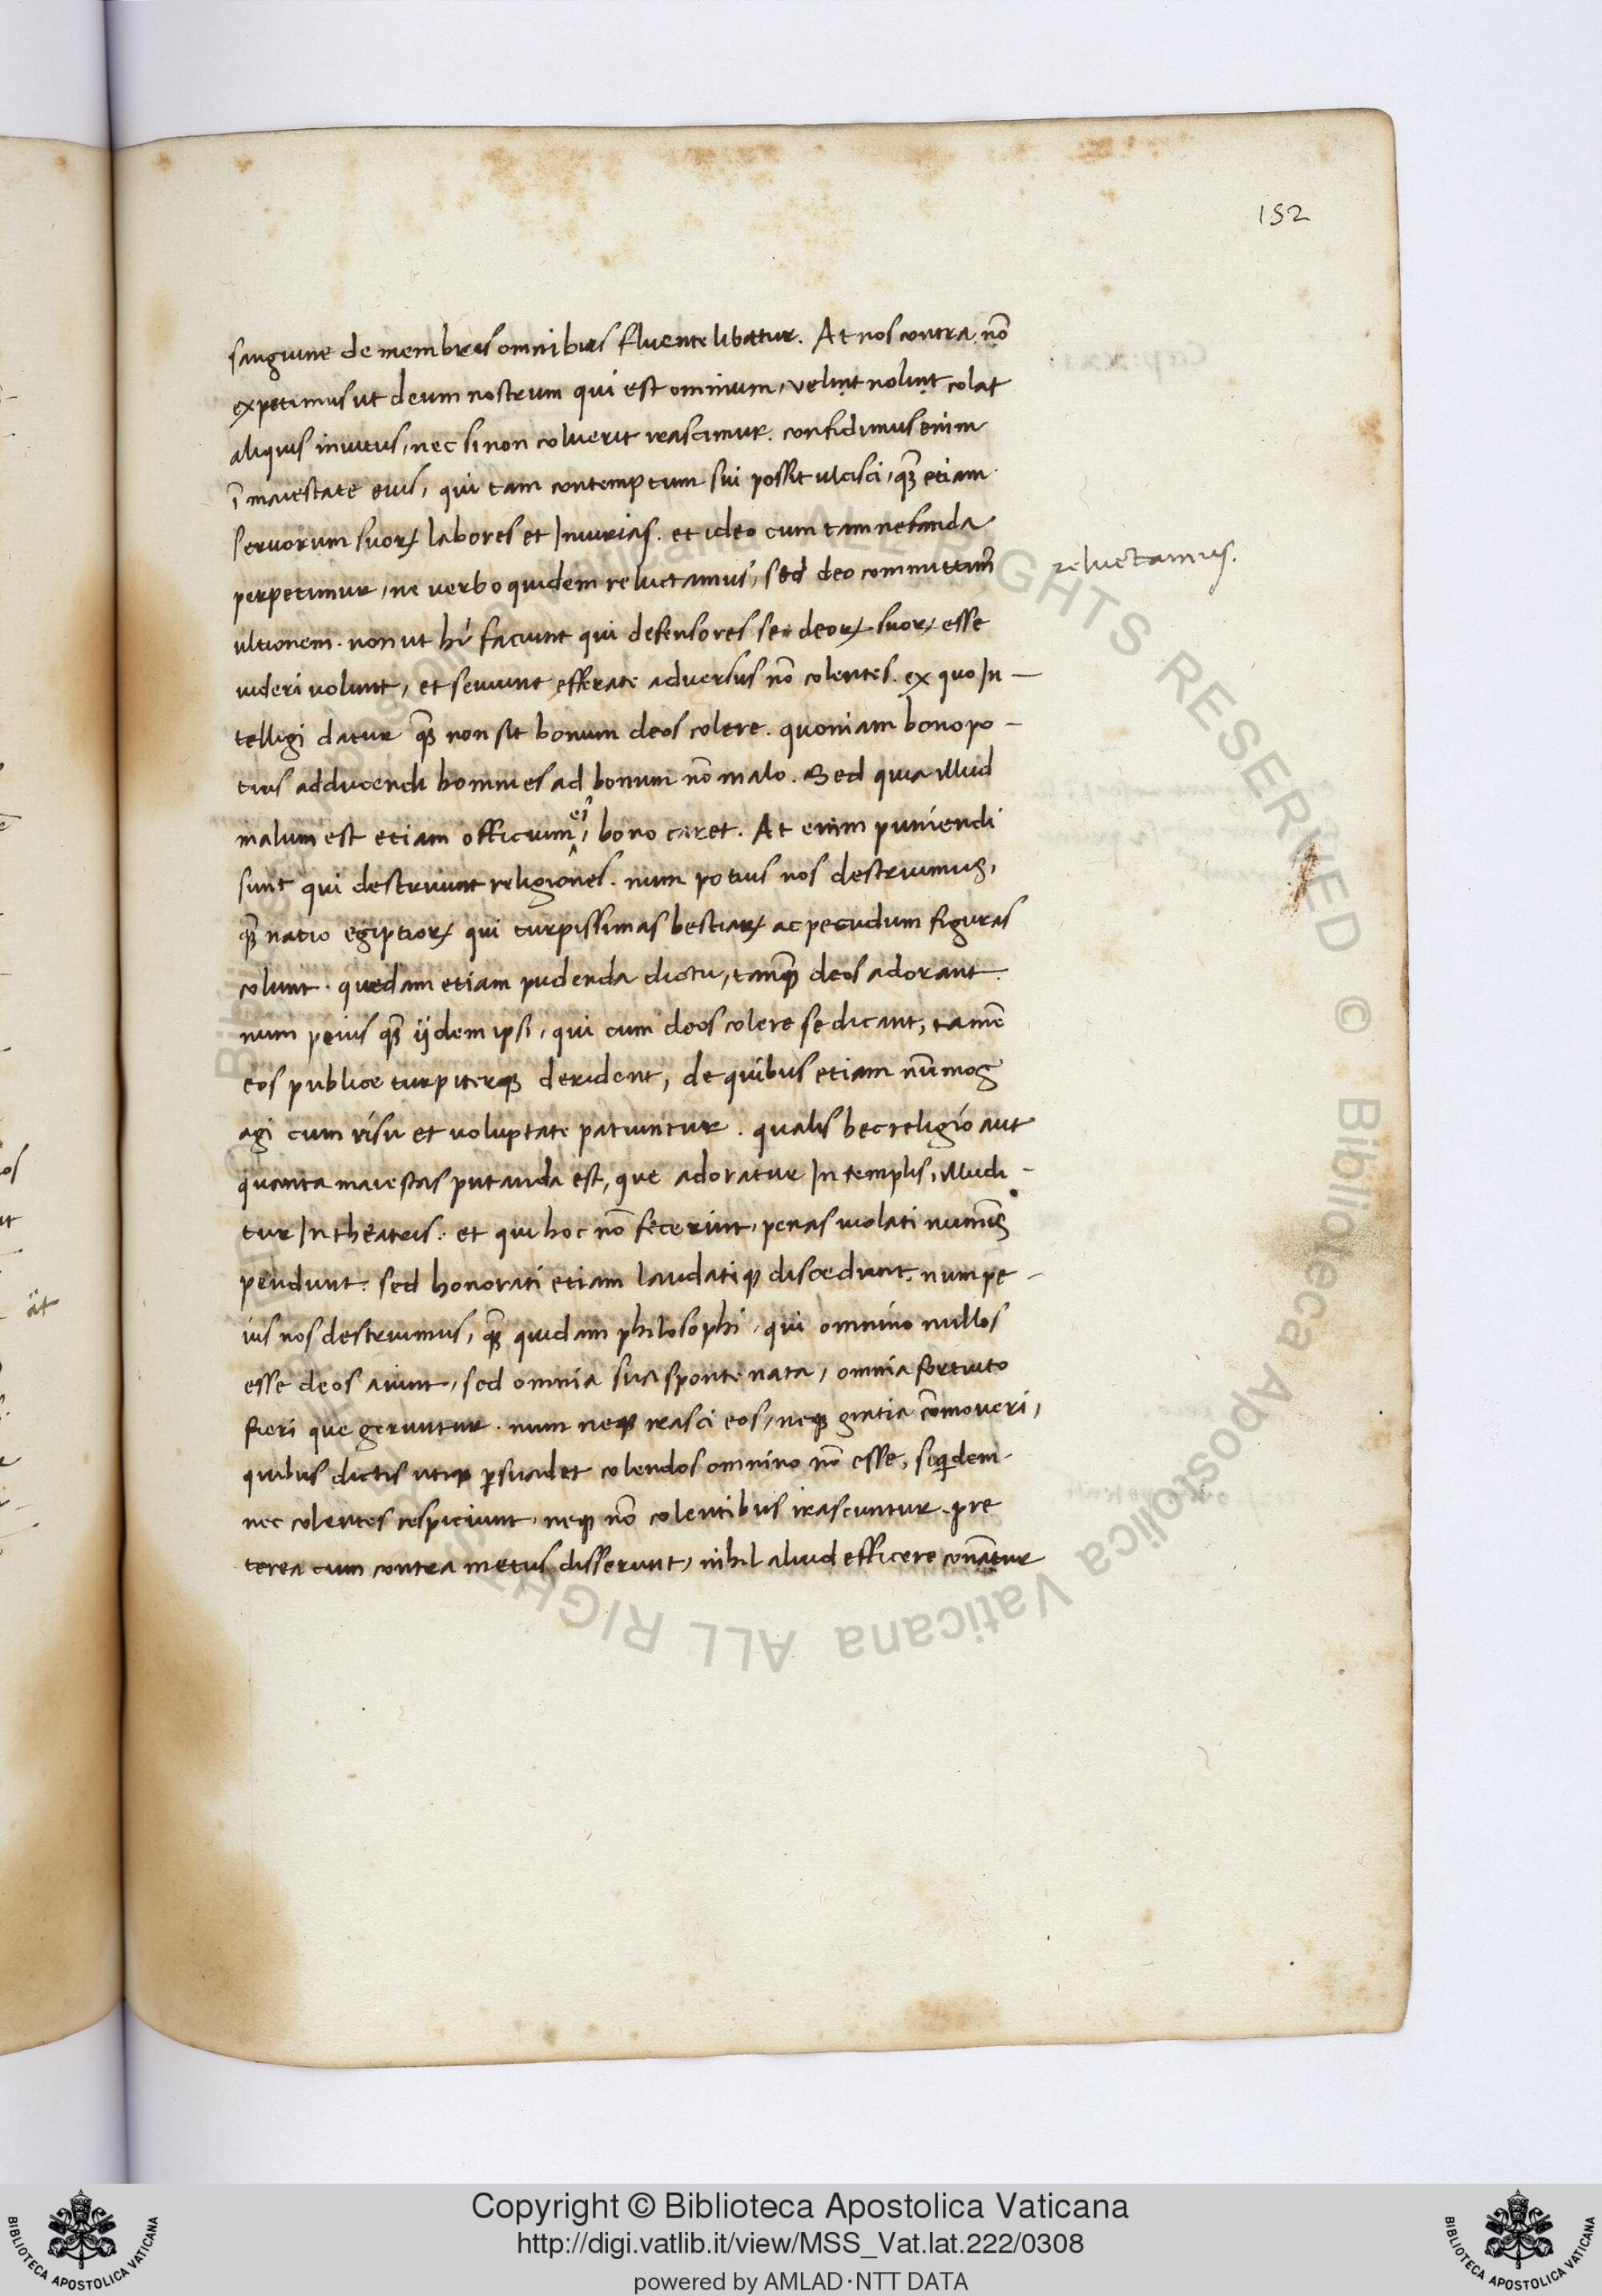 152
sanguine de membris omnibus fluente libatur. At nos contra nō
expetimus ut deum nostrum qui est omnium, velint nolint colat
aliquis invitus, nec si non coluerit irascimur. confidimus enim
ī maiestate eius, qui tam contemptum sui possit ulcisci, qȝ etiam
servorum suoꝝ labores et Iniurias. et ideo cum tam nefanda
perpetimur, ne verbo quidem reluctamus, sed deo committimꝰ
reluctamus.
ultionem. non ut hi faciunt qui defensores se deoꝝ suoꝝ esse
uideri volunt, et seuiunt efferate adversus nō colentes. ex quo In-
telligi datur qȝ non sit bonum deos colere. quoniam bono po-
tius adducendi homines ad bonum nō malo. Sed quia illud
malum est etiam officium eiꝰ, bono caret. At enim puniendi
sunt qui destruunt religiones. num potius nos destruimus,
qȝ natio egiptioꝝ qui turpissimas bestiaꝝ ac pecudum figuras
colunt. quedam etiam pudenda dictu, tamqȝ deos adorant.
num peius qȝ ijdem ipsi, qui cum deos colere se dicant, tamē
eos publice turpiterqꝫ derident, de quibus etiam
agi cum risu et voluptate patiuntur. qualis hec religio aut
quanta maiestas putanda est, que adoratur In templis, illudi-
tur In theatris. et qui hoc nō fecerint, penas violati numīs
pendunt. sed honorati etiam laudatiqꝫ discedunt. num pe-
ius nos destruimus, qȝ quidam philosophi, qui omnino nullos
esse deos aiunt, sed omnia sua sponte nata, omnia fortuito
fieri que geruntur. num neqꝫ irasci eos, neqꝫ gratia cōmoveri,
quibus dictis utiqꝫ ꝑsuadet colendos omnino nō esse, siqidem
nec colentes respiciunt, neqꝫ nō colentibus irascuntur. pre
terea cum contra metus disserunt, nihil aliud efficere conātur
Copyright © Biblioteca Apostolica Vaticana
http://digi.vatlib.it/view/MSS_Vat.lat.222/0308
powered by AMLAD·NTT DATA
BIBLIOTECA APOSTOLICA VATICANA
BIBLIOTECA APOSTOLICA VATICANA